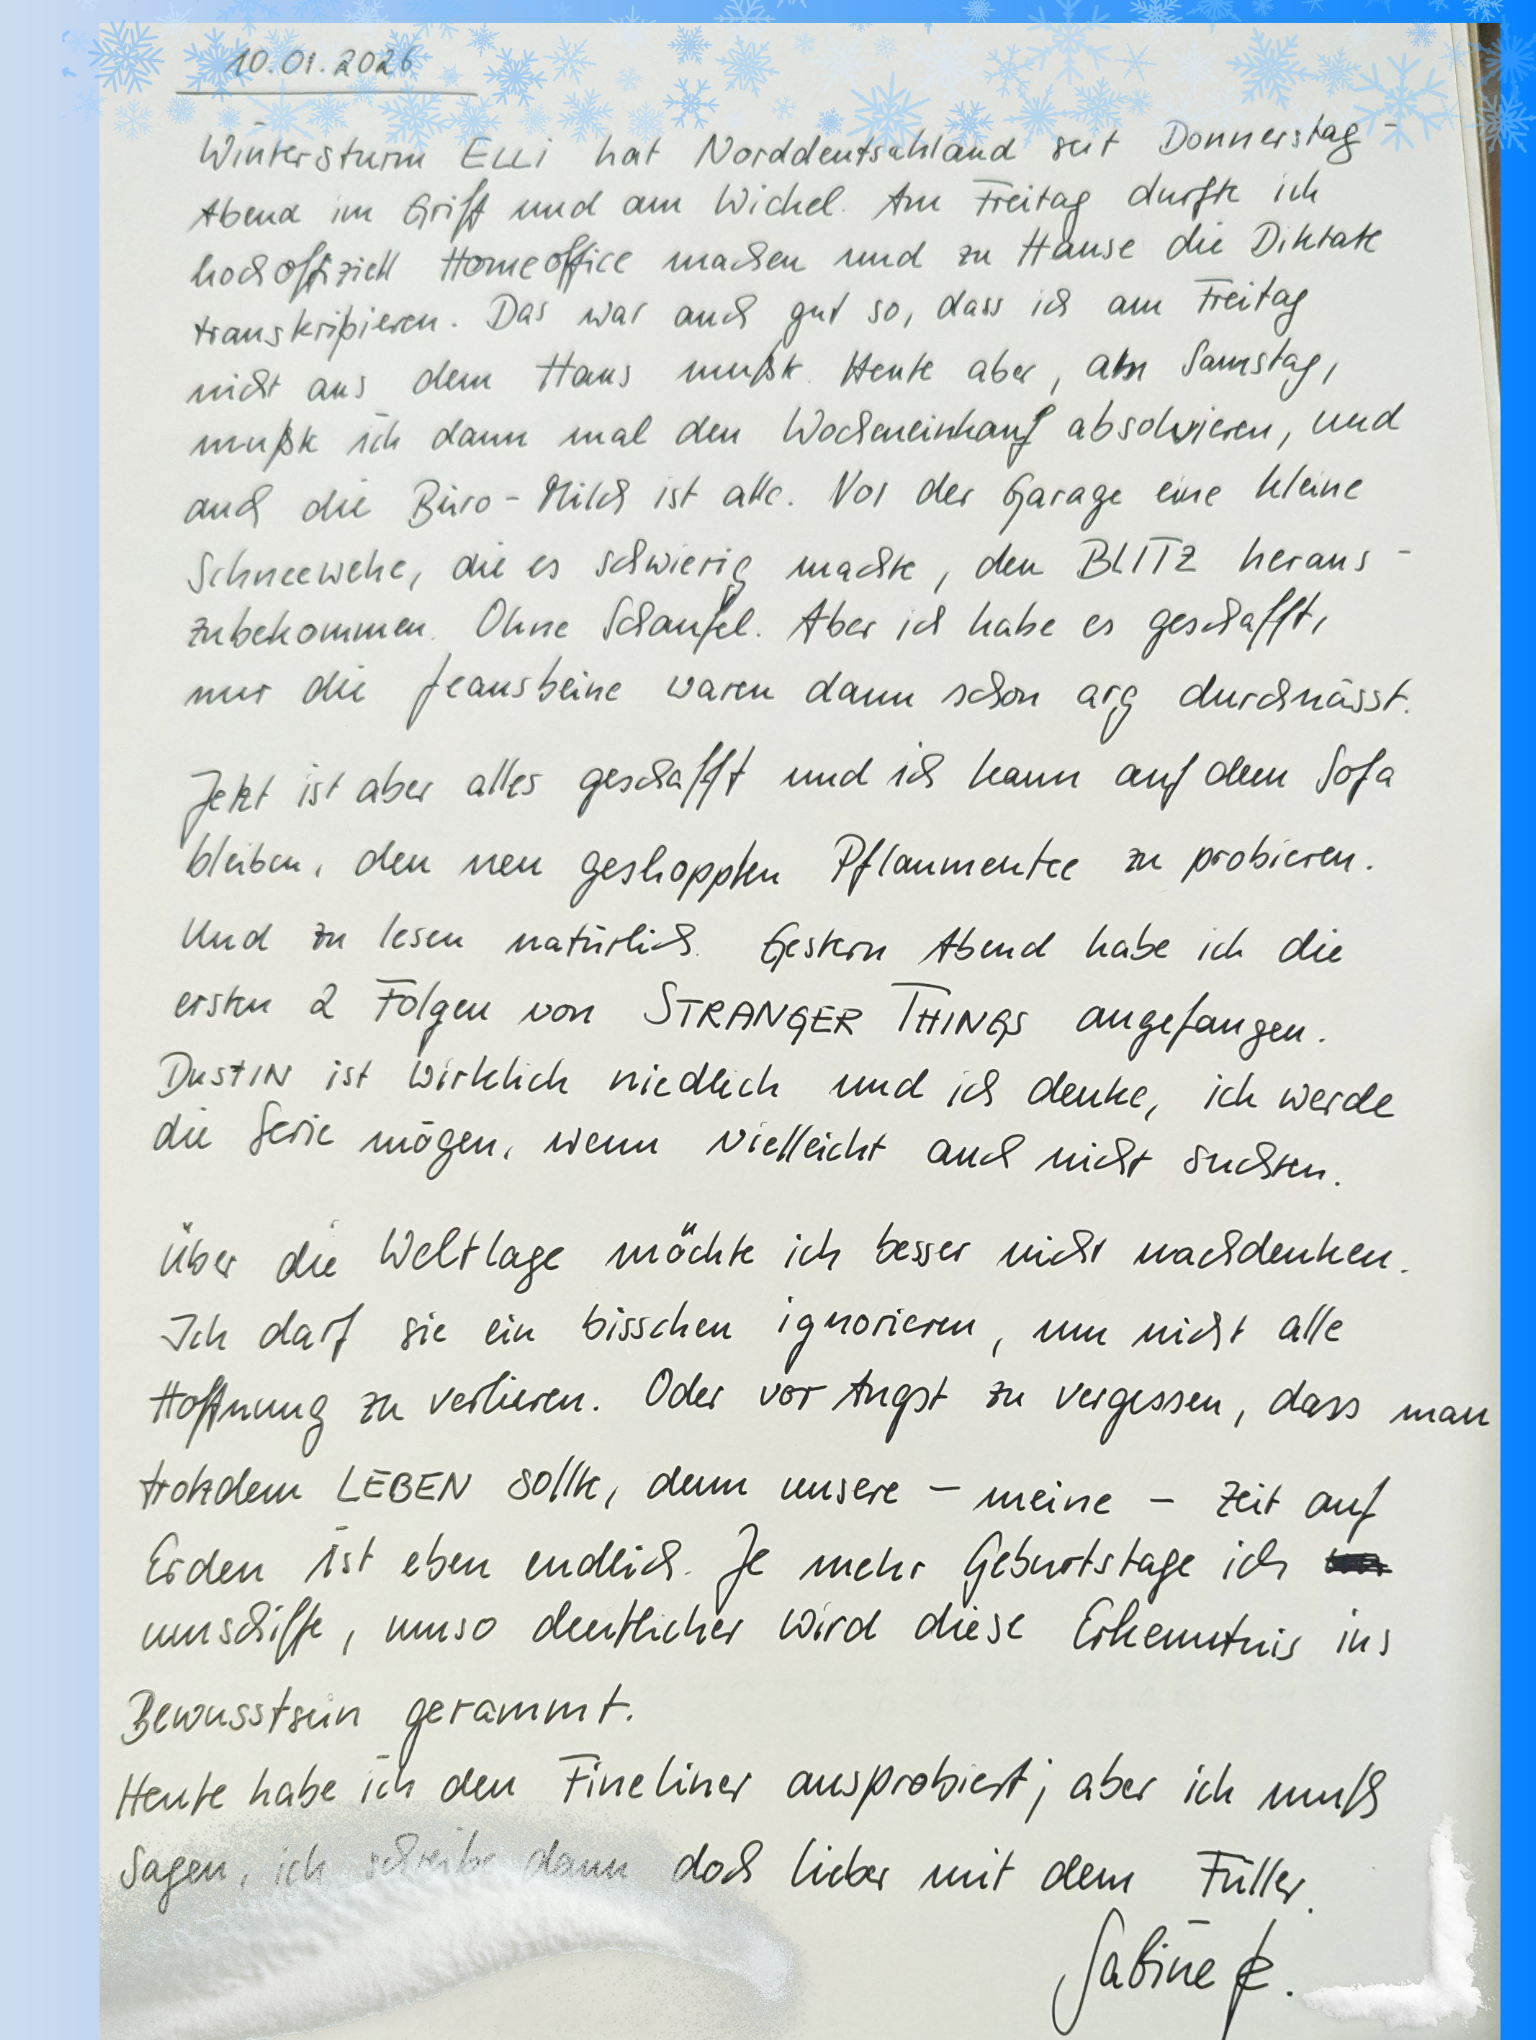 10.01.2026
Wintersturm ELLI hat Norddeutschland seit Donnerstag-
Abend im Griff und am Wickel. Am Freitag durfte ich
hochoffiziell Homeoffice machen und zu Hause die Diktate
transkribieren. Das war auch gut so, dass ich am Freitag
nicht aus dem Haus mußte. Heute aber, am Samstag,
mußte ich dann mal den Wocheneinkauf absolvieren, und
auch die Büro-Milch ist alle. Vor der Garage eine kleine
Schneewehe, die es schwierig machte, den BLITZ heraus-
zubekommen. Ohne Schaufel. Aber ich habe es geschafft,
nur die Jeansbeine waren dann schon arg durchnässt.
Jetzt ist aber alles geschafft und ich kann auf dem Sofa
bleiben, den neu geshoppten Pflaumentee zu probieren.
Und zu lesen natürlich. Gestern Abend habe ich die
ersten 2 Folgen von STRANGER THINGS angefangen.
DUSTIN ist wirklich niedlich und ich denke, ich werde
die Serie mögen, wenn vielleicht auch nicht suchten.
Über die Weltlage möchte ich besser nicht nachdenken.
Ich darf sie ein bisschen ignorieren, um nicht alle
Hoffnung zu verlieren. Oder vor Angst zu vergessen, dass man
trotzdem LEBEN sollte, denn unsere – meine – Zeit auf
Erden ist eben endlich. Je mehr Geburtstage ich
umschiffe, umso deutlicher wird diese Erkenntnis ins
Bewusstsein gerammt.
Heute habe ich den Fineliner ausprobiert; aber ich muß
sagen, ich schreibe dann doch lieber mit dem Füller.
Sabine